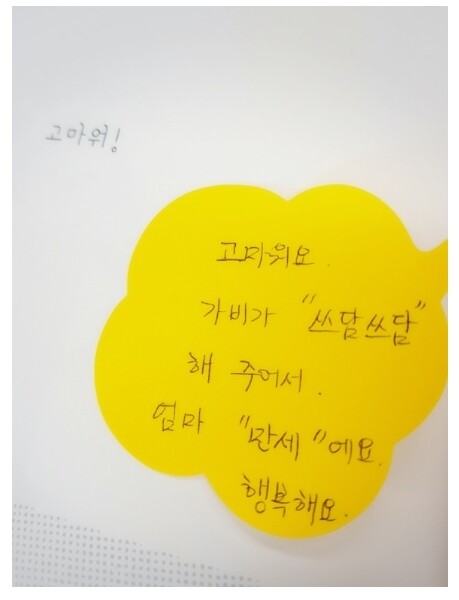 고마워!
고마워요.
가비가 "쓰담쓰담"
해 주어서.
엄마 "만세"예요.
행복해요.